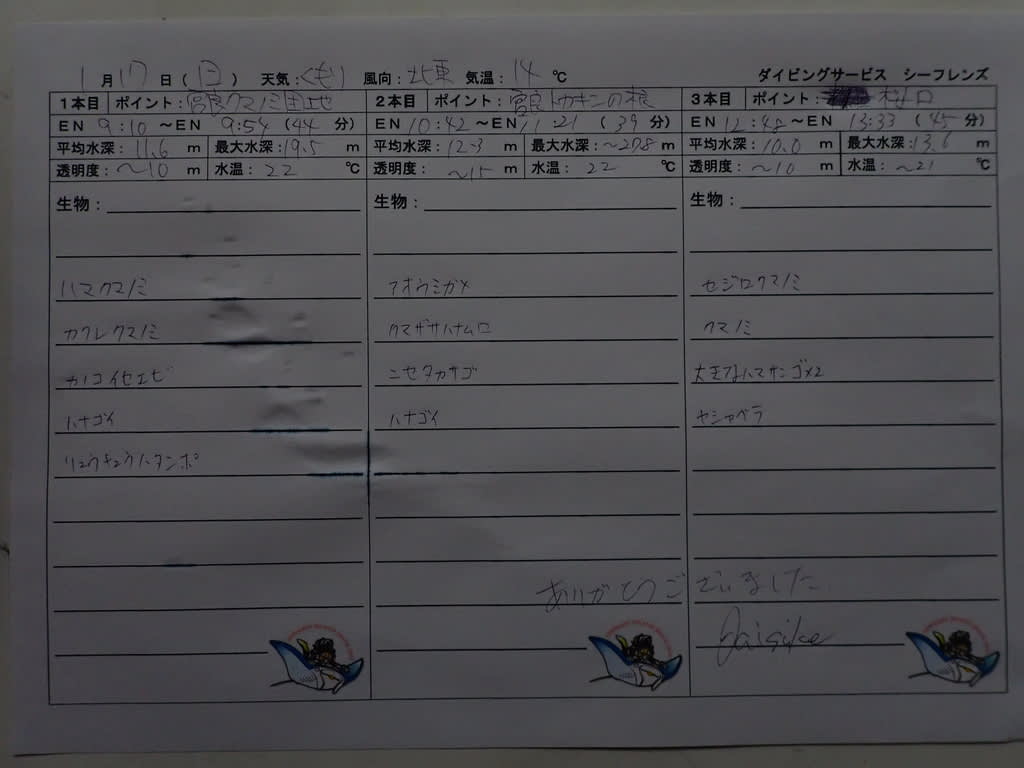 1月17日(日) 天気:くもり 風向:北東 気温:14℃ ダイビングサービス シーフレンズ
1本目 ポイント:宮良クマノミ団地
EN 9:10 ~EN 9:54 (44分)
平均水深:11.6 m 最大水深:19.5 m
透明度:~10 m 水温:22 ℃
生物:
ハマクマノミ
カクレクマノミ
カノコイセエビ
ハナゴイ
リュウキュウハタンポ
2本目 ポイント:宮良トカキンの根
EN 10:42 ~EN 11:21 (39分)
平均水深:12.3 m 最大水深:~27.8 m
透明度:~15 m 水温:22 ℃
生物:
アオウミガメ
クマザサハナムロ
ニセタカサゴ
ハナゴイ
3本目 ポイント:
EN 12:48 ~EN 13:33 (45分)
平均水深:10.0 m 最大水深:13.6 m
透明度:~10 m 水温:~21 ℃
生物:
セジロクマノミ
クマノミ
大きなハマサンゴ×2
ヤシャベラ
ありがとうございました
Daisike